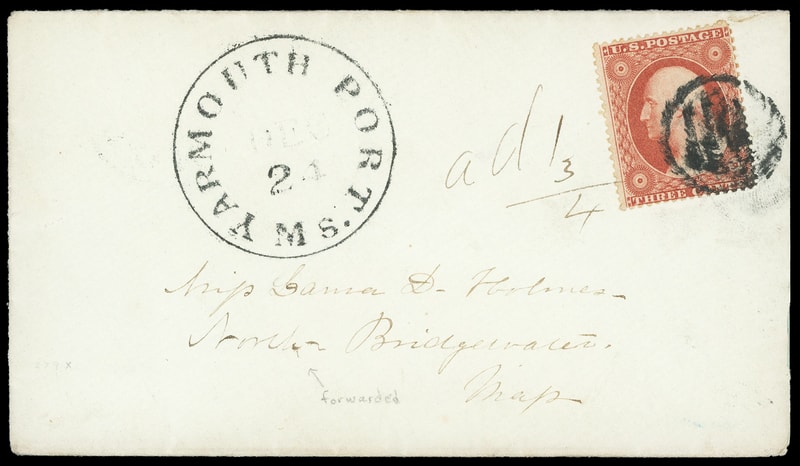 YARMOUTH PORT. Ms.
DEC
24
U.S. POSTAGE
THREE CENTS
ad 1 3/4
Miss Laura D. Holmes
North Bridgewater.
Mass
forwarded